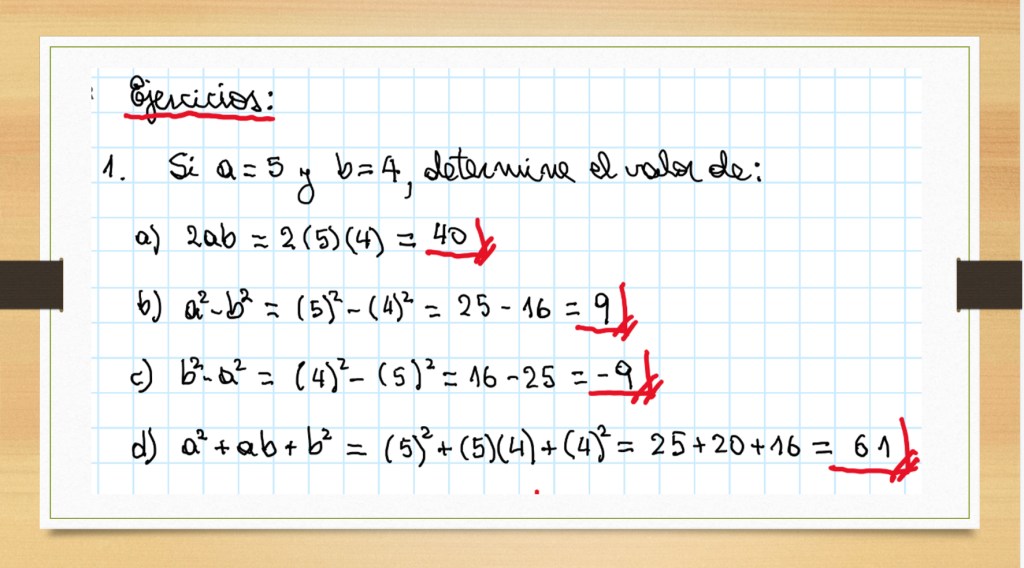 Ejercicios:
1. Si a = 5 y b = 4, determine el valor de:
a) 2ab = 2(5)(4) = 40
b) a² - b² = (5)² - (4)² = 25 - 16 = 9
c) b² - a² = (4)² - (5)² = 16 - 25 = -9
d) a² + ab + b² = (5)² + (5)(4) + (4)² = 25 + 20 + 16 = 61